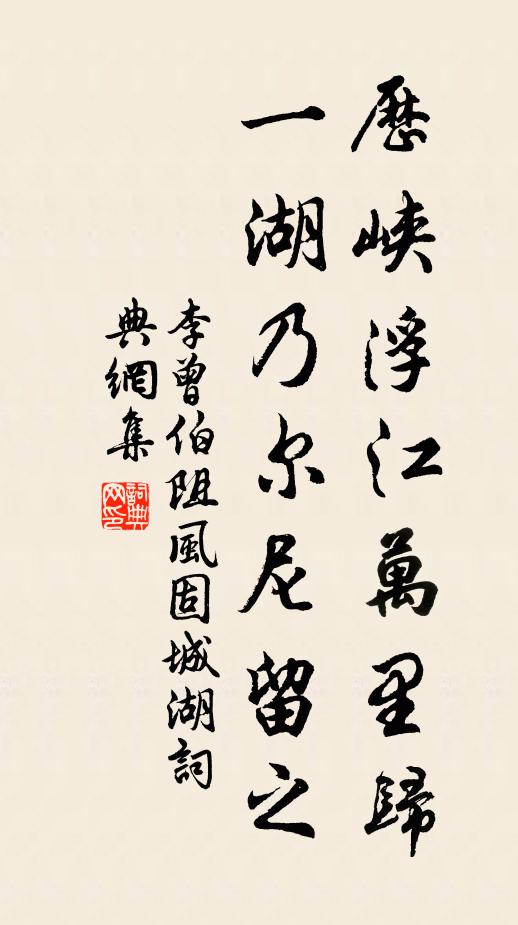 歷峽浮江萬里歸
一湖乃尔尼留之
李曾伯阻風固城湖詞
典網集
詞典网印